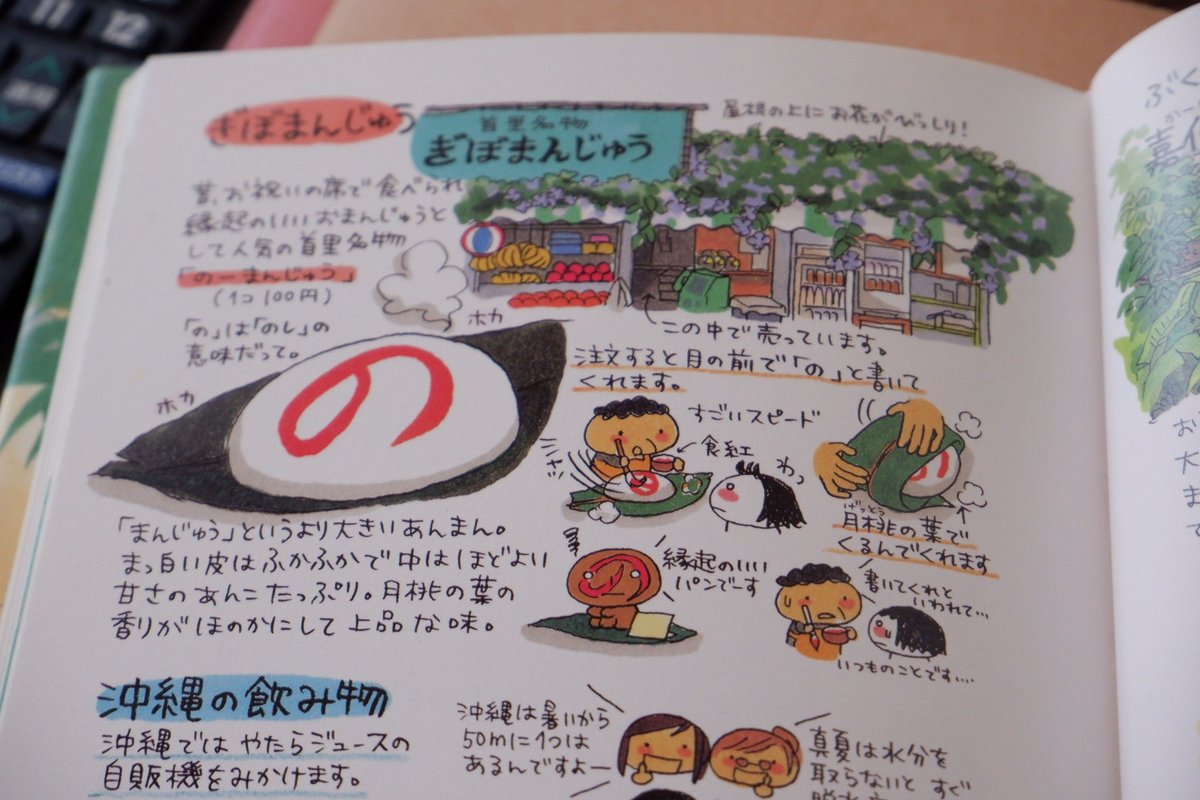 11
12
ぎぼまんじゅう
首里名物
ぎぼまんじゅう
屋根の上にお花がびっしり!
昔、お祝いの席で食べられ
縁起のいいおまんじゅうと
して人気の首里名物
「のーまんじゅう」
(1コ100円)
「の」は「のし」の
意味だって。
ホカ
ホカ
の
この中で売っています。
注文すると目の前で「の」と書いて
くれます。
すごいスピード
食紅
わっ
げっとう
月桃の葉で
くるんでくれます
「まんじゅう」というより大きいあんまん。
まっ白い皮はふかふかで中はほどよい
甘さのあんこたっぷり。月桃の葉の
香りがほのかにして上品な味。
縁起のいい
パンでーす
書いてくれと
いわれて…
いつものことです…
沖縄の飲み物
沖縄ではやたらジュースの
自販機をみかけます。
沖縄は暑いから
50mに1つは
あるんですよー
真夏は水分を
取らないとすぐ
ぶく
お
大
ま